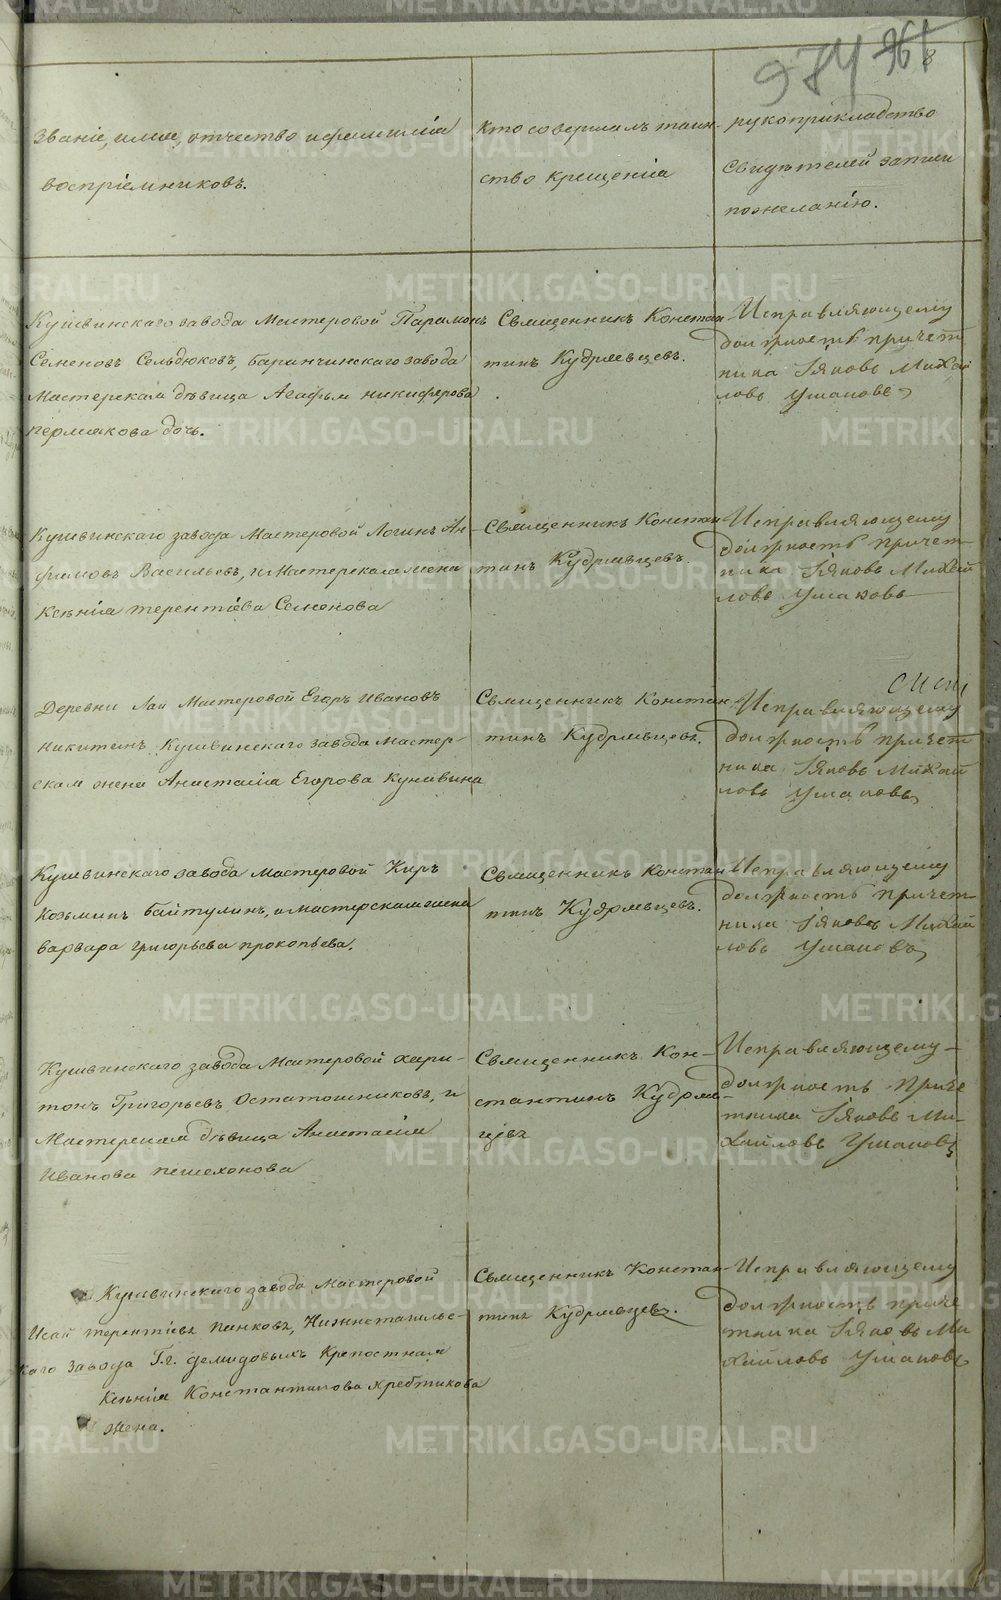 974 361
8
званіе, имя, отчество и фамилія
воспріемниковъ.
Кто совершалъ таин-
ство крещенія
рукоприкладство
свидѣтелей записи
по желанію.
Кушвинскаго завода Мастеровой Парамонъ
Семеновъ Сельдюковъ, Баранчинскаго завода
Мастерская дѣвица Агафья Никифорова
Пермякова дочь.
Священникъ Констан
тинъ Кудрявцевъ.
Исправляющему
должность причет
ника Іяковъ Михай
ловъ Ушаковъ
Кушвинскаго завода Мастеровой Логинъ Ан-
фимовъ Васильевъ, и Мастерская жена
Ксенія Терентіева Семенова
Священникъ Констан
тинъ Кудрявцевъ.
Исправляющему
должность причет-
ника Іяковъ Михай
ловъ Ушаковъ
Деревни Лаи Мастеровой Егоръ Ивановъ
Никитинъ, Кушвинскаго завода Мастер-
ская жена Анастасія Егорова Кунавина
Священникъ Констан
тинъ Кудрявцевъ.
Исправляющему
должность причет
ника Іяковъ Михай
ловъ Ушаковъ
Кушвинскаго завода Мастеровой Киръ
Козьминъ Байтулинъ, и мастерская жена
варвара григорьева прокопьева.
Священникъ Констан
тинъ Кудрявцевъ.
Исправляющему
должность причет
ника Іяковъ Михай
ловъ Ушаковъ
Кушвинскаго завода Мастеровой Хари-
тонъ Григорьевъ Остатошниковъ, и
Мастерская дѣвица Анастасія
Иванова Пешехонова
Священникъ Кон-
стантинъ Кудряв-
цевъ
Исправляющему-
должность приче
тника Іяковъ Ми-
хайловъ Ушаковъ
Кушвинскаго завода Мастеровой
Исай Терентіевъ Панковъ, Нижнетагильс-
каго завода Г.г. Демидовыхъ Крепостная
Ксенія Константинова Хребтикова
жена.
Священникъ Констан-
тинъ Кудрявцевъ.
Исправляющему
должность приче
тника Іяковъ Ми
хайловъ Ушаковъ
METRIKI.GASO-URAL.RU